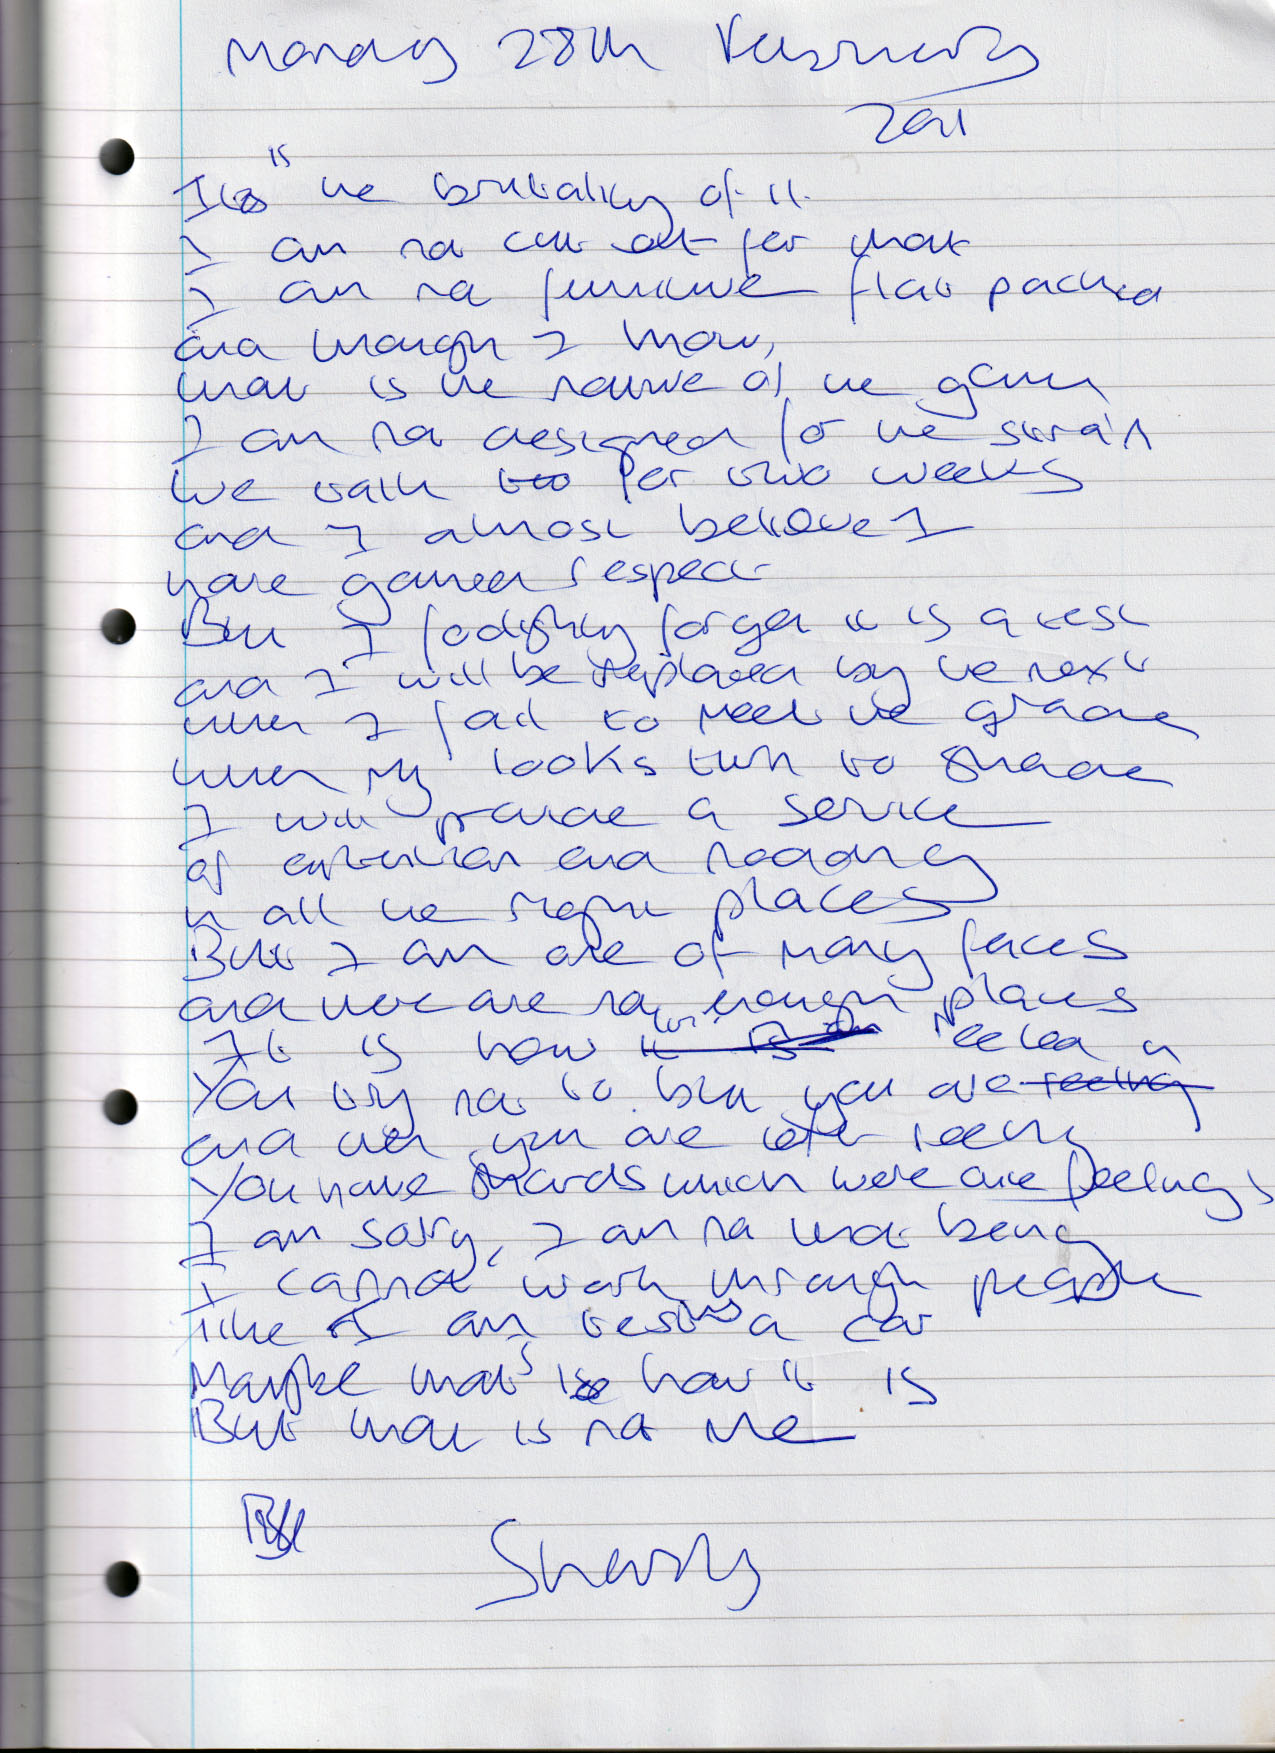 Monday 28th February
2011
It is the brutality of it.
I am not cut out for that
I am not furniture flat packed
and though I know,
that is the nature of the game
I am not designed for the strain
We talk too for two weeks
and I almost believe I
have gained respect
But I foolishly forget it is a test
and I will be replaced by the next
when I fail to meet the grade
when my looks turn to shade
I will provide a service
of attention and nodding
in all the right places
But I am one of many faces
and there are not enough places
It is how it is
You try not to but you are feeling
and then you are left reeling
You have which were once feelings
I am sorry, I am not that being
I cannot work through people
like I am testing a car
Maybe that's how it is
But that is not me
By